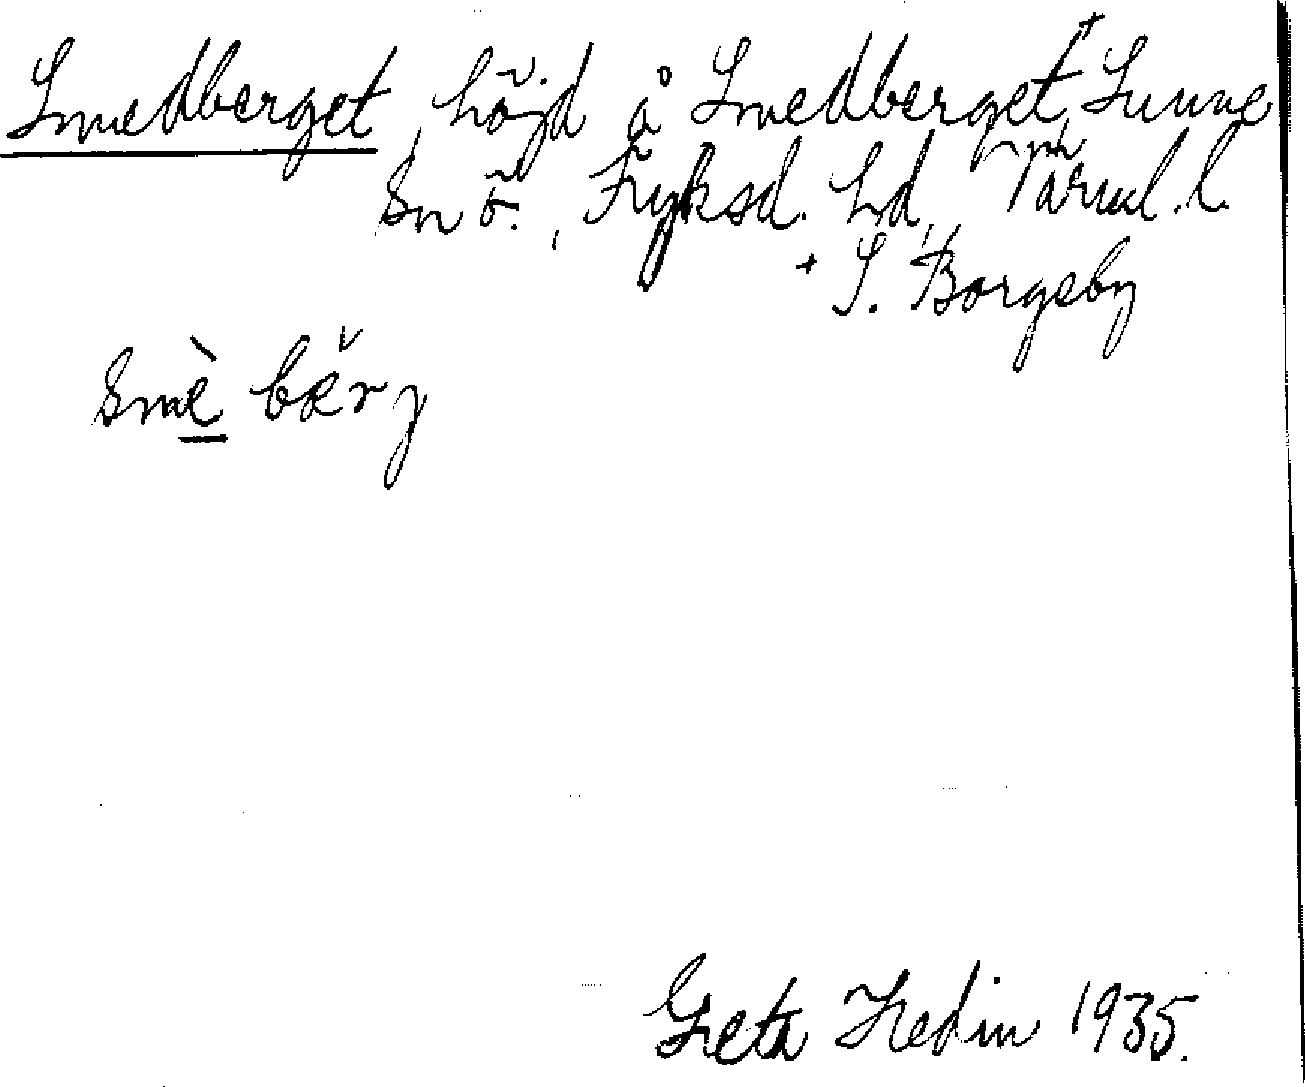 Smedberget, höjd å Smedberget,+ Sunne
Sn ö., Fryksd. Hd, Värml. l.
+ S. Borgeby
smè bærj
Greta Hedin 1935.